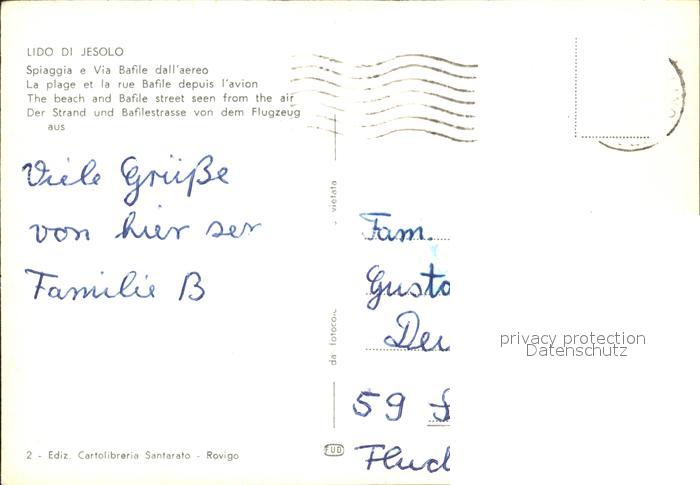 LIDO DI JESOLO
Spiaggia e Via Bafile dall'aereo
La plage et la rue Bafile depuis l'avion
The beach and Bafile street seen from the air
Der Strand und Bafilestrasse von dem Flugzeug
aus
Viele Grüße
von hier
Familie B
2 - Ediz. Cartolibreria Santarato - Rovigo
vietata
da fotoco
FUD
Fam.
Gusto
59
privacy protection
Datenschutz